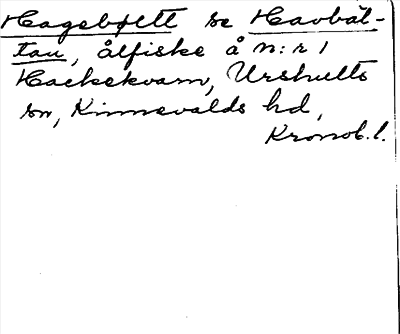 Hagebøtte se Havbät-
tan, ålfiske å N:r 1
Hackekvarn, Urshults
sn, Kinnevalds hd,
Kronob. l.